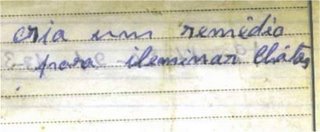 cria um remédio
para ileminar Chátos
.